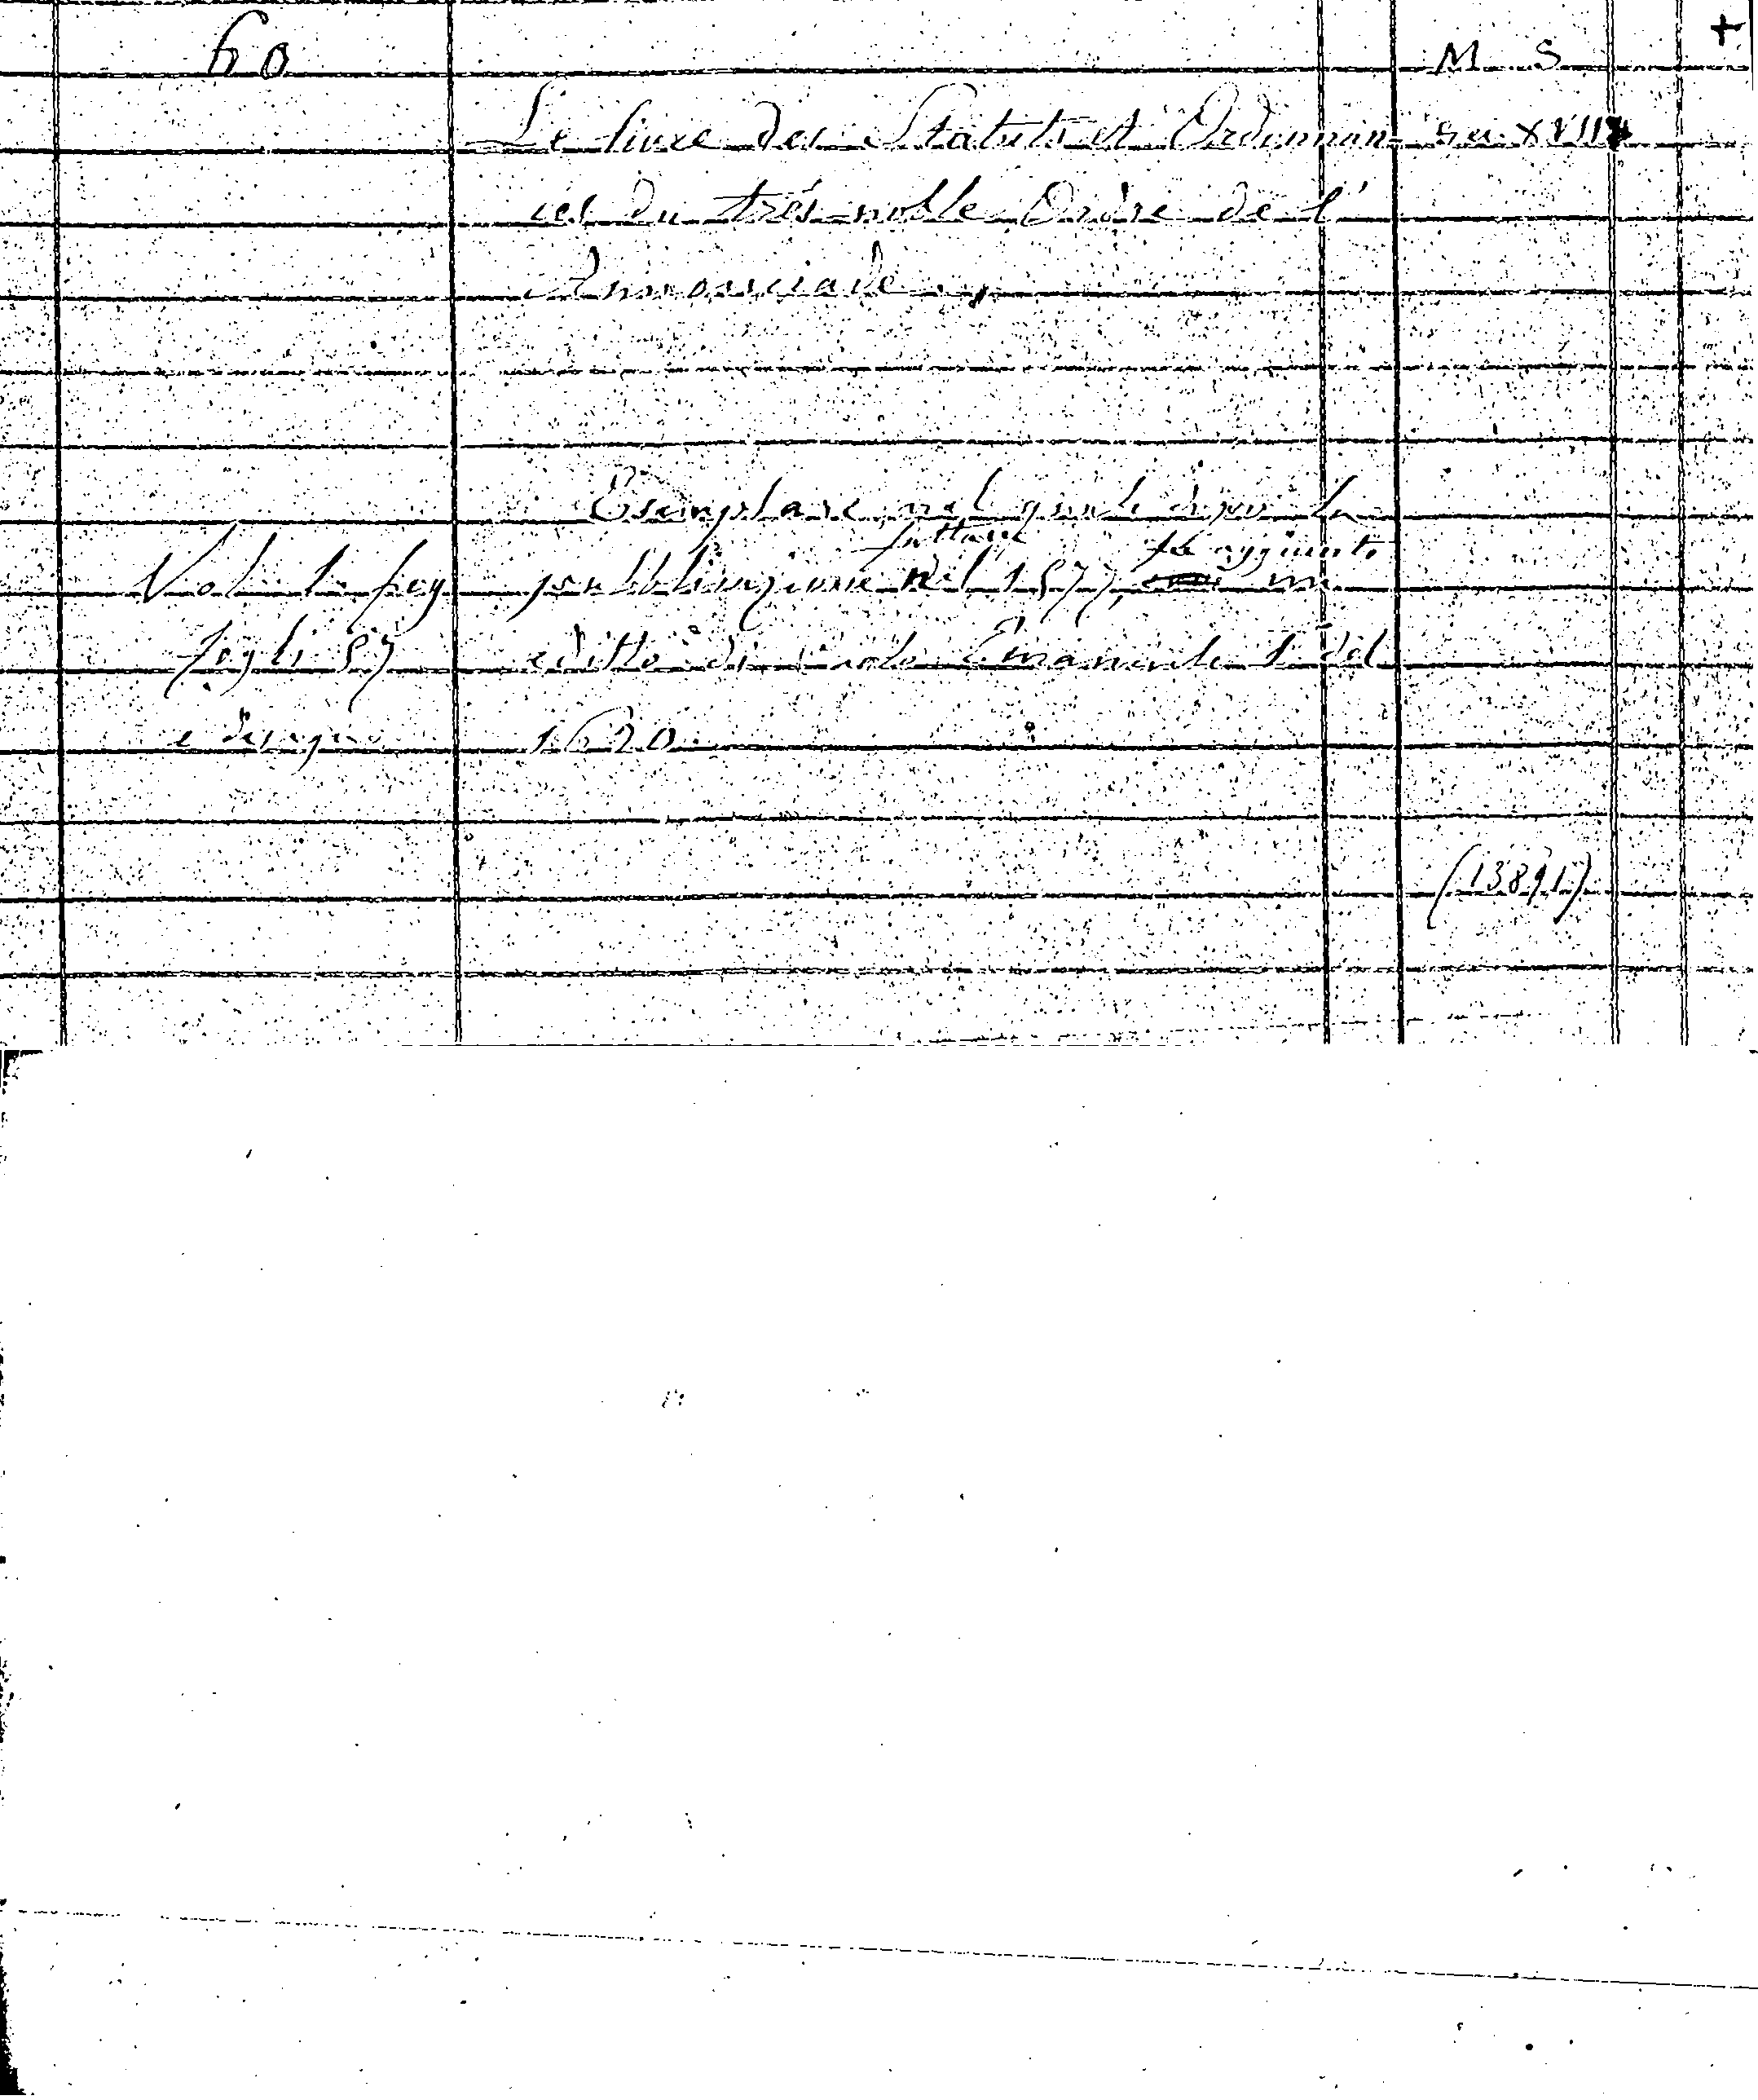 60
M. S. +
Le livre des Statuts et Ordonnan- Sec. XVII
ces du très noble Ordre de l'
Annonciade.
Esemplare nel quale dopo la
fattane fu aggiunto
Vol. 1. leg. pubblicazione nel 1577, un
fogli 57 editto di Carlo Emanuele I del
1620
(13891)